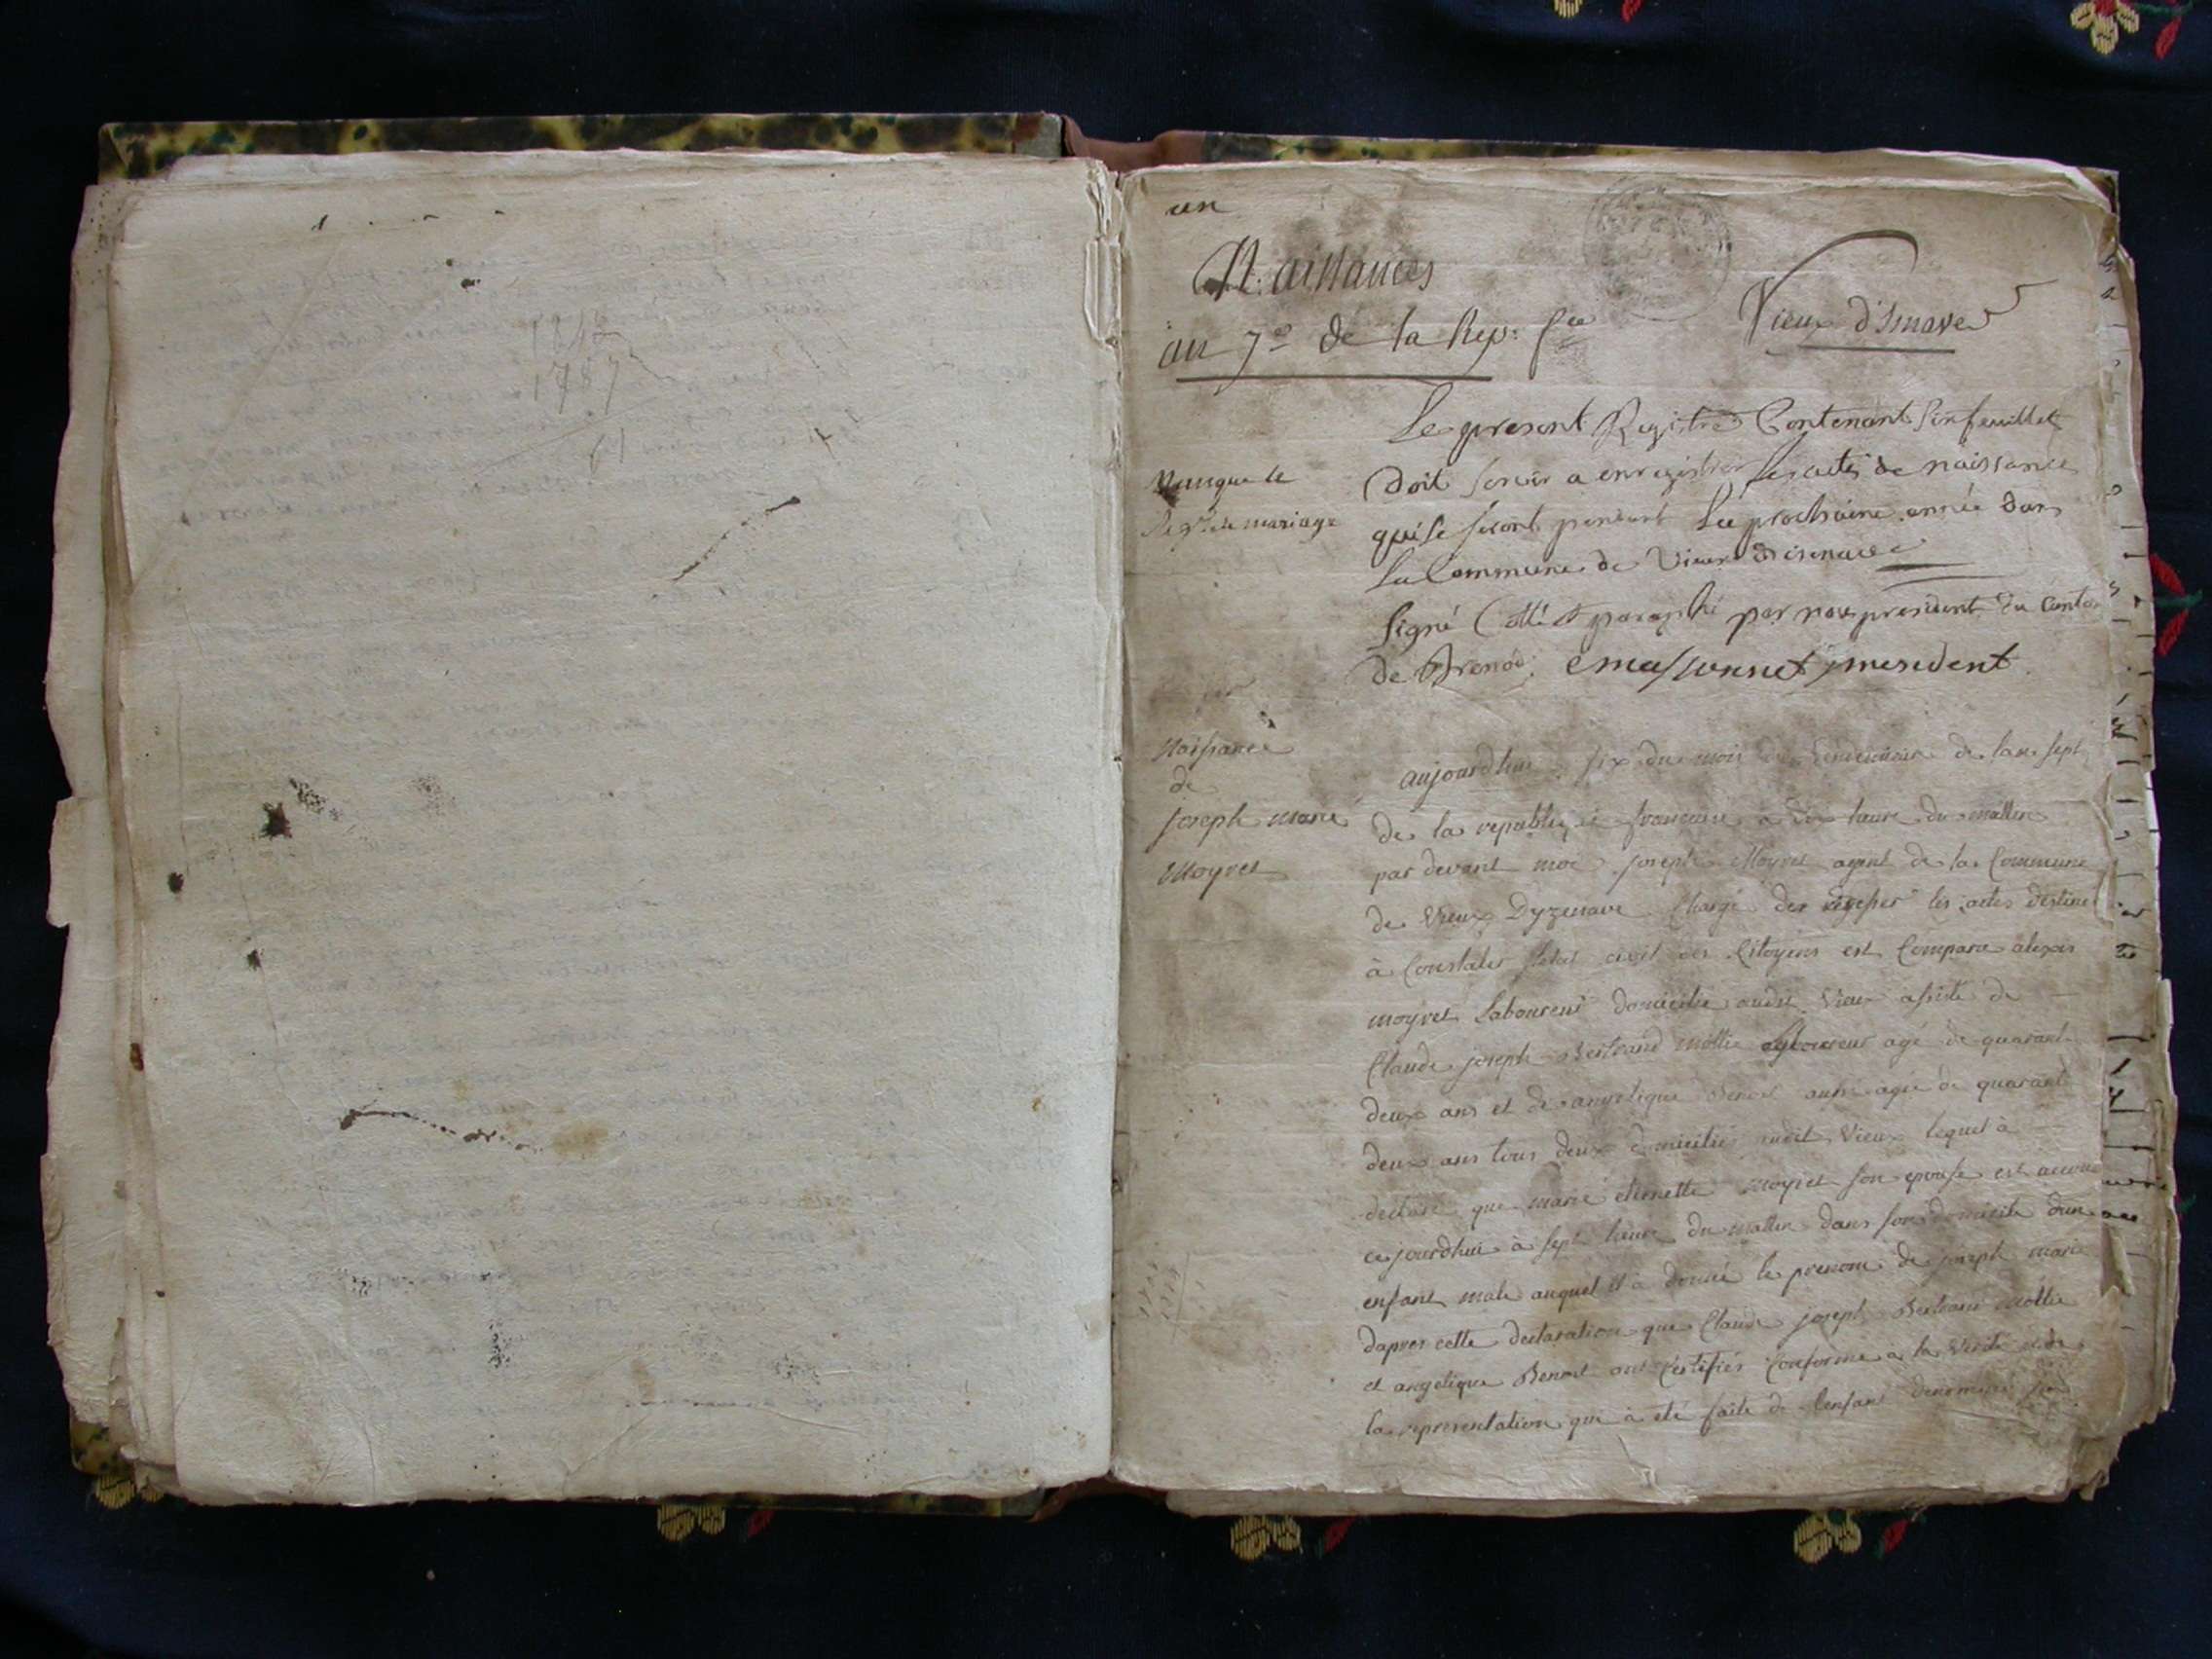 1787
61
un
Naissances
an 7e de la Rep: fce
Vieux d'Smave
Le present Registre Contenant six feuillets
Manque le
doit servir a enregistrer les actes de naissances
de mariage
qui se feront pendant la prochaine année dans
la Commune de Vieux
signé Cotté et paraphé par nous president du canton
de Brenod. president
Naissance
de
joseph marie
Moyret
aujourdhui six du mois de vendemiaire de lan sept
de la republique francaise a dix heure du mattin
par devant moi joseph Moyret agent de la Commune
de Vieux Dyzenave Chargé de les actes destine
à Constater letat civil des Citoyens est Comparu alexis
moyret Laboureur domicilie audit Vieux assiste de
Claude joseph Bertrand mottie Laboureur agé de quarant
deux ans et de angelique Benoit aussi agée de quarant
deux ans tous deux domicilies audit Vieux lequel à
declaré que marie etienette moyret son epouse est accou
cejourdhui à sept heure du mattin dans son domicile dun
enfant male auquel il a donné le prenom de joseph marie
dapres cette declaration que Claude joseph Bertrand mottie
et angelique Benoit ont Certifiés Conforme a la Verité et de
la representation qui à eté faite de lenfant denommé